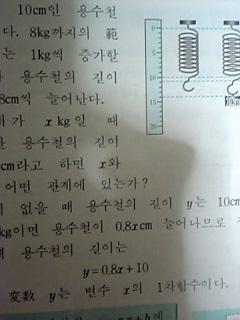 10cm인 용수철
다. 8kg까지의 範
는 1kg씩 증가할
용수철의 길이
8cm씩 늘어난다.
가 x kg일 때
용수철의 길이
cm라고 하면 x와
어떤 관계에 있는가?
없을 때 용수철의 길이 y는 10cm
kg이면 용수철이 0.8xcm 늘어나므로
용수철의 길이는
y=0.8x+10
變數 y는 변수 x의 1차함수이다.
0
5
10
15
20